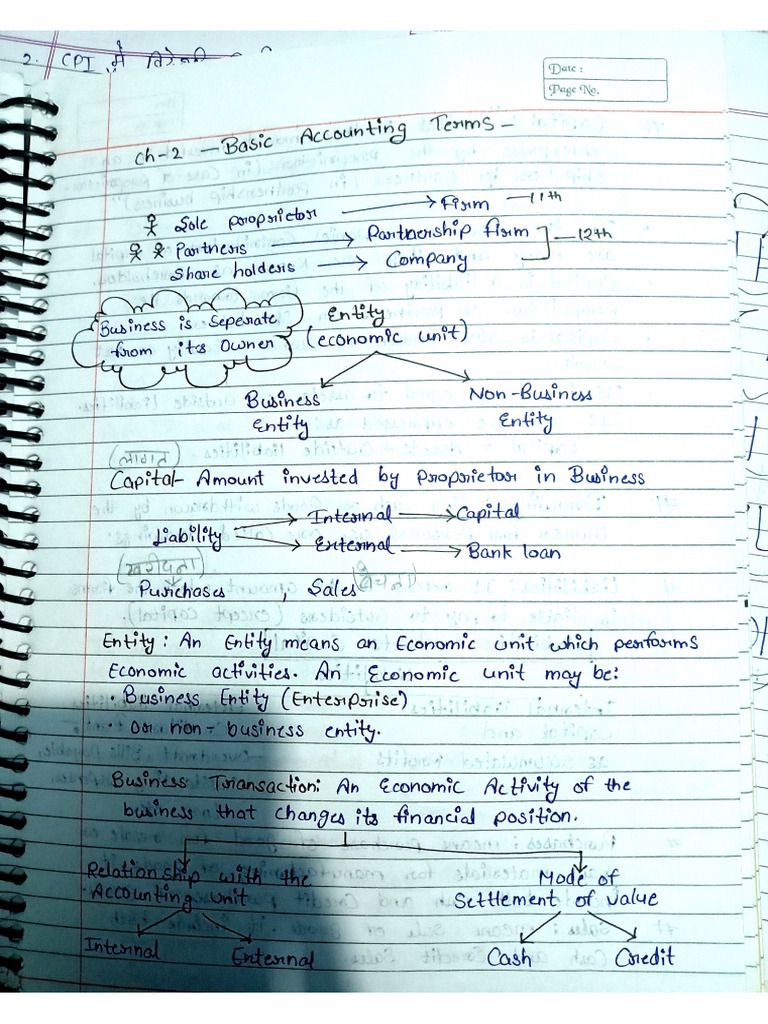 2. CPI में
Date :
Page No.
Ch-2 - Basic Accounting Terms -
Sole proprietor → Firm - 11th
Partners → Partnership firm
Share holders → Company
12th
Business is Seperate
from its Owner
Entity
(economic unit)
Business
Entity
Non-Business
Entity
(लागत)
Capital- Amount invested by Proprietor in Business
Liability
Internal → Capital
External → Bank loan
(खरीदना)
(बेचना)
Purchases , Sales
Entity : An Entity means an Economic unit which performs
Economic activities. An Economic unit may be:
· Business Entity (Enterprise)
· or non- business entity.
Business Transaction: An Economic Activity of the
business that changes its financial position.
Relationship with the
Accounting Unit
Internal
External
Mode of
Settlement of value
Cash
Credit